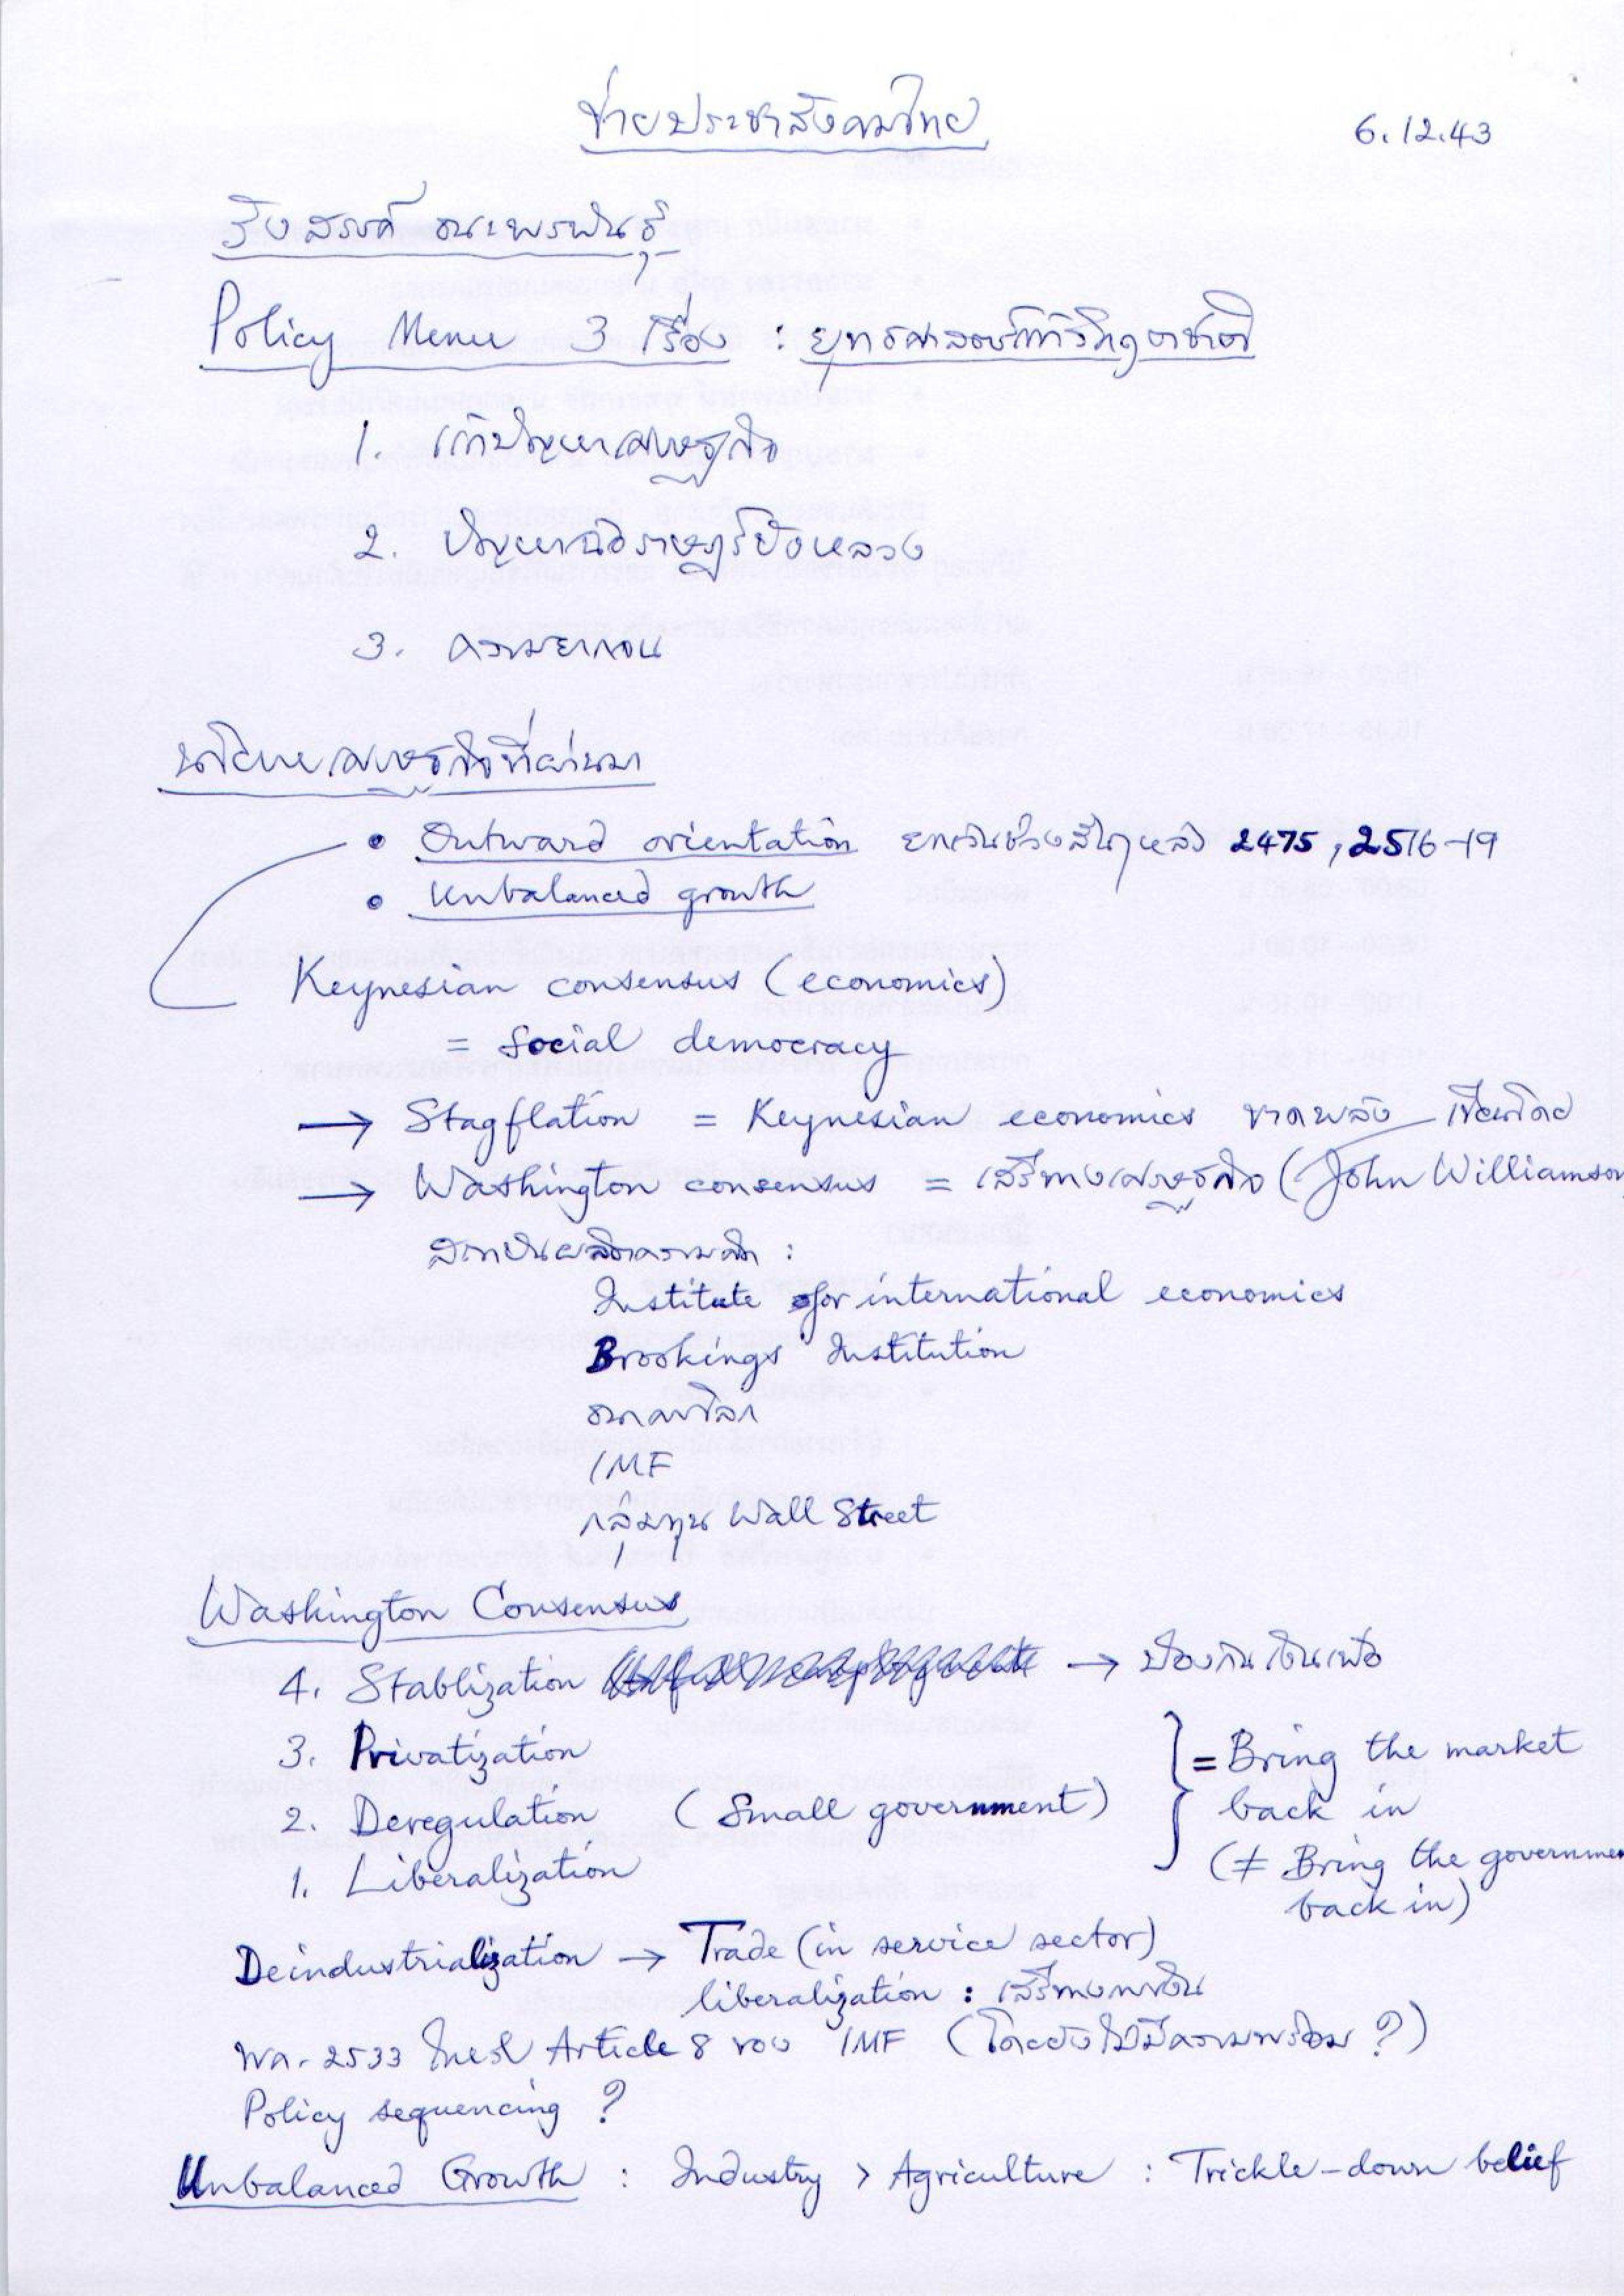 ข่ายประชาสังคมไทย
6.12.43
รังสรรค์ ธนะพรพันธุ์
Policy Menu 3 เรื่อง : ยุทธศาสตร์แก้วิกฤตชาติ
1. แก้ปัญหาเศรษฐกิจ
2. ปัญหาฉ้อราษฎร์บังหลวง
3. ความยากจน
นโยบายเศรษฐกิจที่ผ่านมา
• Outward orientation ยกเว้นช่วงสั้นๆ หลัง 2475, 2516-19
• Unbalanced growth
Keynesian consensus (economics)
= Social democracy
→ Stagflation = Keynesian economics ขาดพลัง เขียนโดย
→ Washington consensus = เสรีทางเศรษฐกิจ (John Williamson
สถาบันผลิตความคิด :
Institute for international economics
Brookings Institution
ธนาคารโลก
IMF
กลุ่มทุน Wall Street
Washington Consensus
4. Stablization → ป้องกันเงินเฟ้อ
3. Privatization
2. Deregulation (Small government)
1. Liberalization
} = Bring the market
back in
(≠ Bring the governmen
back in)
Deindustrialization → Trade (in service sector)
liberalization : เสรีทางการเงิน
พค. 2533 ไทยรับ Article 8 ของ IMF (โดยยังไม่มีความพร้อม ?)
Policy sequencing ?
Unbalanced Growth : Industry > Agriculture : Trickle-down belief